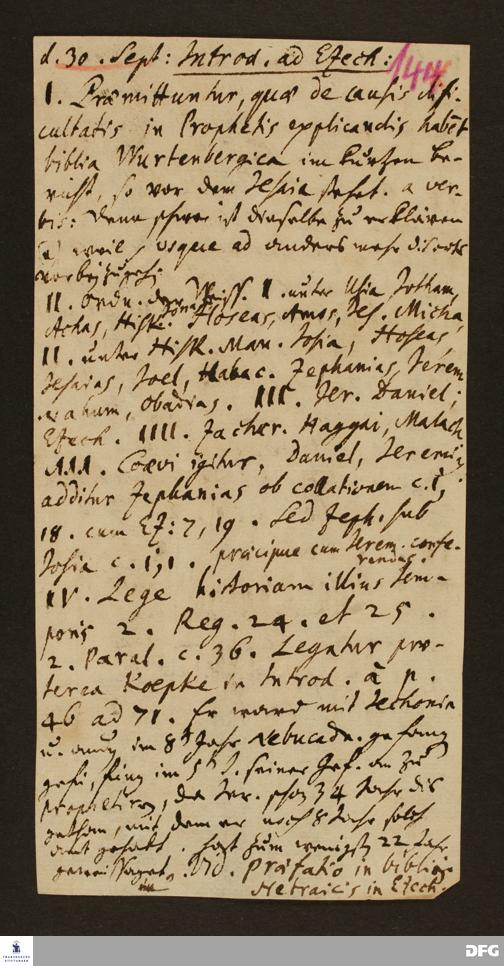 d. 30. Sept: Introd. ad Ezech: 144
I. Præmittuntur, quæ de causis difi-
cultatis in Prophetis explicandis habet
biblia Wurtenbergica im kurtzen be-
richt, so vor dem Jesaia stehet. a ver-
bis: denn schwer ist dieselbe zu erklären
weil, usque ad anders mehr
vorbeyzugehen
II. Ordn. der Weiss. I. unter Usia, Jotham,
Achas, Hisk. Jonas Hoseas, Amos, Jes. Micha,
II. unter Hisk. Man. Josia, Hoseas,
Jesaias, Joel, Habac. Zephanias, Jerem
Nahum, Obadias. III. Jer. Daniel,
Ezech. IIII. Zachar. Haggai, Malach
III. Coævi igitur, Daniel, Jeremias
additur Zephanias ob collationem c. 1,
18. cum Ez: 7, 19. Sed Zeph. sub
Josia c. 1, 1. præcipue cum Jerem. confe-
rendus.
IV. Lege historiam illius tem-
poris 2. Reg. 24. et 25.
2. Paral. c. 36. Legatur præ-
terea Koepke in Introd. à p.
46 ad 71. Er ward mit Jechonia
u. im 8t Jahr Nebucadn. gefang
geführt, fing im 5t J. seiner Gef. an zu
prophetiren, da Jer. schon 34 Jahr dis
gethan, mit dem er noch 8 Jahr solch
amt gehabt. hat zum wenigsten 22 Jahr
geweissaget. Vid. Præfatio in bibliis
Hebraicis in Ezech.
FRANCKESCHE
STIFTUNGEN
DFG